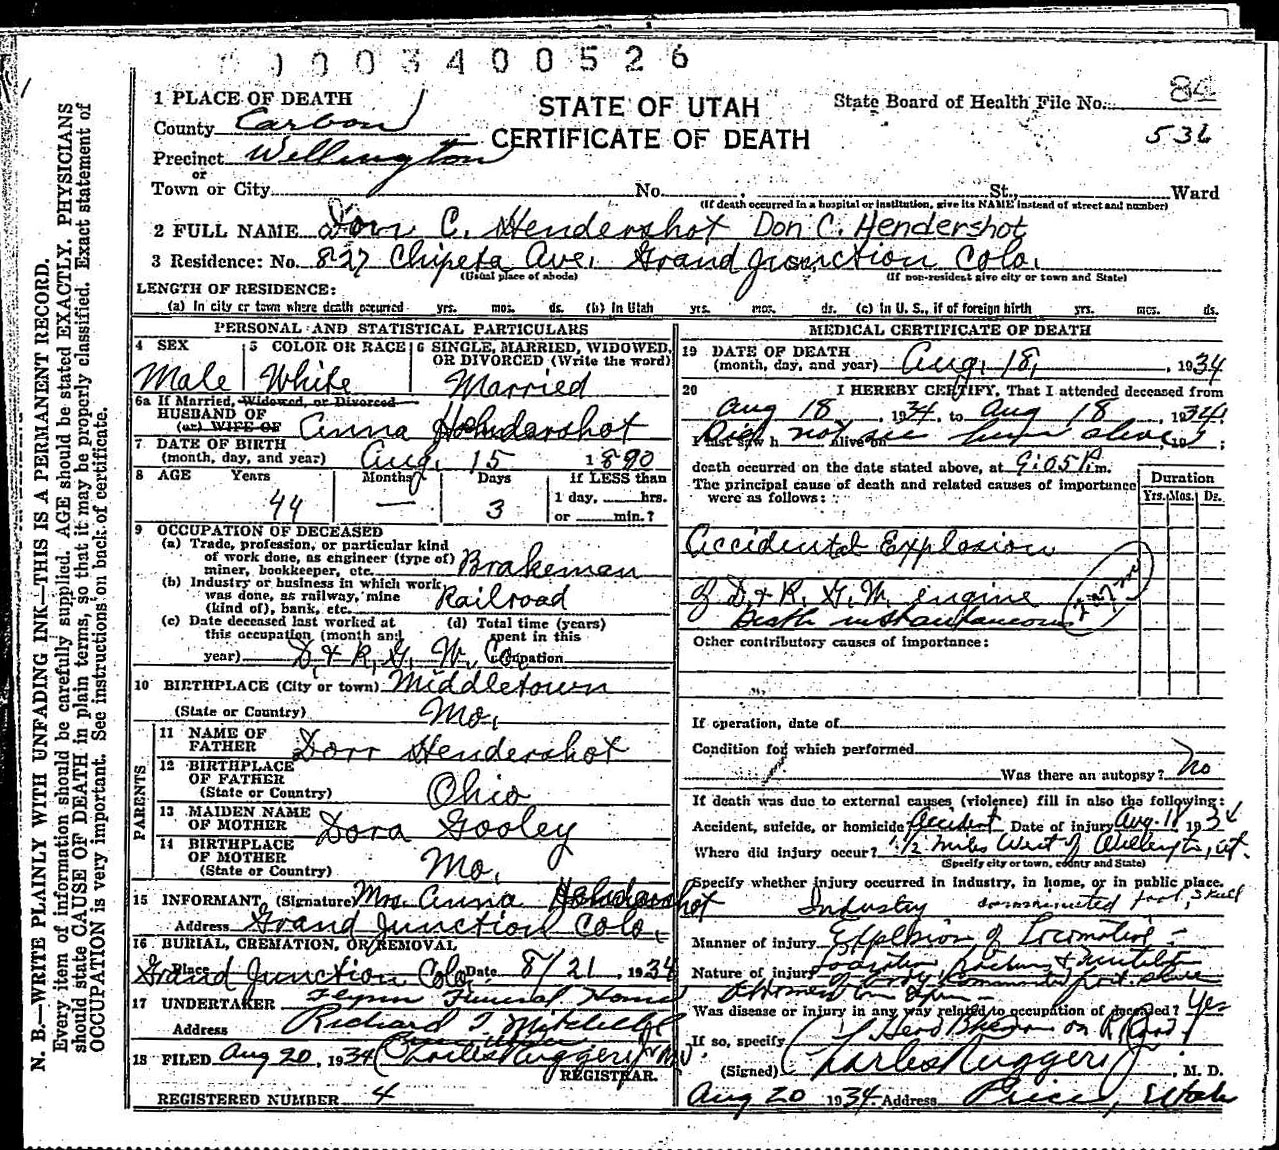 0003400526
1 PLACE OF DEATH
STATE OF UTAH
CERTIFICATE OF DEATH
State Board of Health File No. 84
536
County Carbon
Precinct Wellington
or
Town or City No. St., Ward
(If death occurred in a hospital or institution, give its NAME instead of street and number)
2 FULL NAME Don C. Hendershot Don C. Hendershot
3 Residence: No. 827 Chipeta Ave. Grand Junction Colo.
(Usual place of abode) (If non-resident give city or town and State)
LENGTH OF RESIDENCE:
(a) In city or town where death occurred yrs. mos. ds. (b) In Utah yrs. mos. ds. (c) in U. S., if of foreign birth yrs. mos. ds.
PERSONAL AND STATISTICAL PARTICULARS
4 SEX Male
5 COLOR OR RACE White
6 SINGLE, MARRIED, WIDOWED, OR DIVORCED (Write the word) Married
6a If Married, Widowed, or Divorced
HUSBAND OF
(or) WIFE OF Anna Hendershot
7 DATE OF BIRTH
(month, day, and year) Aug. 15 1890
8 AGE Years 44 Months — Days 3
if LESS than
1 day, hrs.
or min.?
9 OCCUPATION OF DECEASED
(a) Trade, profession, or particular kind
of work done, as engineer (type of)
miner, bookkeeper, etc. Brakeman
(b) Industry or business in which work
was done, as railway, mine
(kind of), bank, etc. Railroad
(c) Date deceased last worked at
this occupation (month and
year)
(d) Total time (years)
spent in this
occupation
D. & R. G. W. Co.
10 BIRTHPLACE (City or town) Middletown
(State or Country) Mo.
PARENTS
11 NAME OF
FATHER Dorr Hendershot
12 BIRTHPLACE
OF FATHER
(State or Country) Ohio
13 MAIDEN NAME
OF MOTHER Dora Gooley
14 BIRTHPLACE
OF MOTHER
(State or Country) Mo.
15 INFORMANT (Signature) Mrs. Anna Hendershot
Address Grand Junction Colo.
16 BURIAL, CREMATION, OR REMOVAL
Place Grand Junction Colo. Date 8/21, 1934
17 UNDERTAKER Flynn Funeral Home
Address Richard T. Mitchell
18 FILED Aug 20, 1934 Charles Ruggeri Jr M.D.
REGISTRAR.
REGISTERED NUMBER 4
MEDICAL CERTIFICATE OF DEATH
19 DATE OF DEATH
(month, day, and year) Aug. 18, 1934
20 I HEREBY CERTIFY, That I attended deceased from
Aug 18, 1934, to Aug 18, 1934
I last saw h alive on 19
Did not see him alive
death occurred on the date stated above, at 9:05 P.m.
The principal cause of death and related causes of importance
were as follows:
Duration
Yrs. Mos. Ds.
Accidental Explosion
of D & R. G. W. engine
Death instantaneous
Other contributory causes of importance:
If operation, date of
Condition for which performed
Was there an autopsy? No
If death was due to external causes (violence) fill in also the following:
Accident, suicide, or homicide? Accident Date of injury Aug. 18 1934
Where did injury occur? 1 1/2 miles West of Wellington, Ut.
(Specify city or town, county and State)
Specify whether injury occurred in industry, in home, or in public place.
Industry
Manner of injury Explosion of Locomotive
Nature of injury
Was disease or injury in any way related to occupation of deceased? Yes
If so, specify
(Signed) Charles Ruggeri Jr., M. D.
Aug 20 1934 Address Price, Utah
N. B.—WRITE PLAINLY WITH UNFADING INK—THIS IS A PERMANENT RECORD.
Every item of information should be carefully supplied. AGE should be stated EXACTLY. PHYSICIANS
should state CAUSE OF DEATH in plain terms, so that it may be properly classified. Exact statement of
OCCUPATION is very important. See instructions on back of certificate.